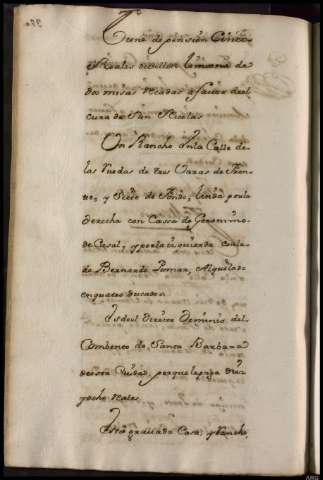 Tiene de pension Cinco
Reales de vellon limosna de
dos misas rezadas a favor del
cura de San Nicolas
Un Rancho en la Calle de
las Ruedas de tres Varas de Fren-
te, y Siete de fondo, linda por la
derecha con Cassa de Geronimo
de Casal, y por la izquierda con la
de Bernardo Roman, Alquilado
en quatro ducados
Es del Directo Dominio del
Combento de Santa Barbara
de esta Ciudad, porque le paga diez
y ocho reales
Esta graduada Casa, y Rancho,